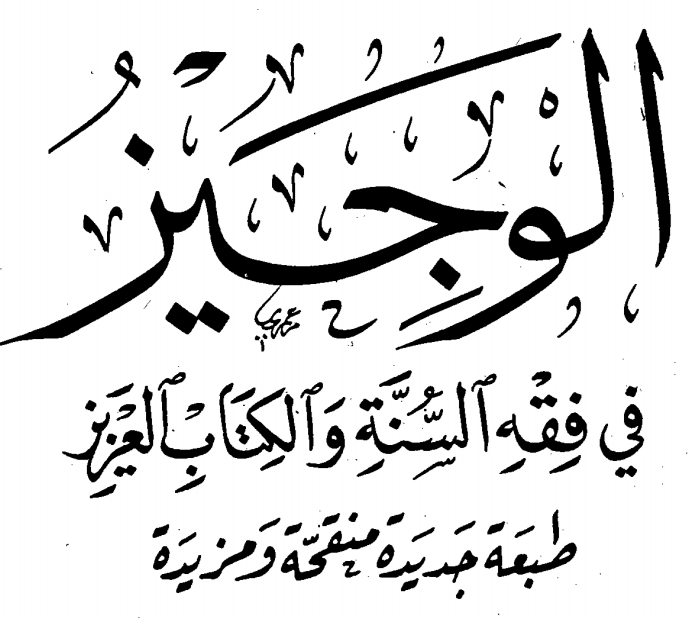 الوَجِيزُ
في فِقْهِ ٱلسُّنَّةِ وَٱلكِتَابِ ٱلعَزِيزِ
طبعَة جَديَدة منقحَّة وَمزيدَة